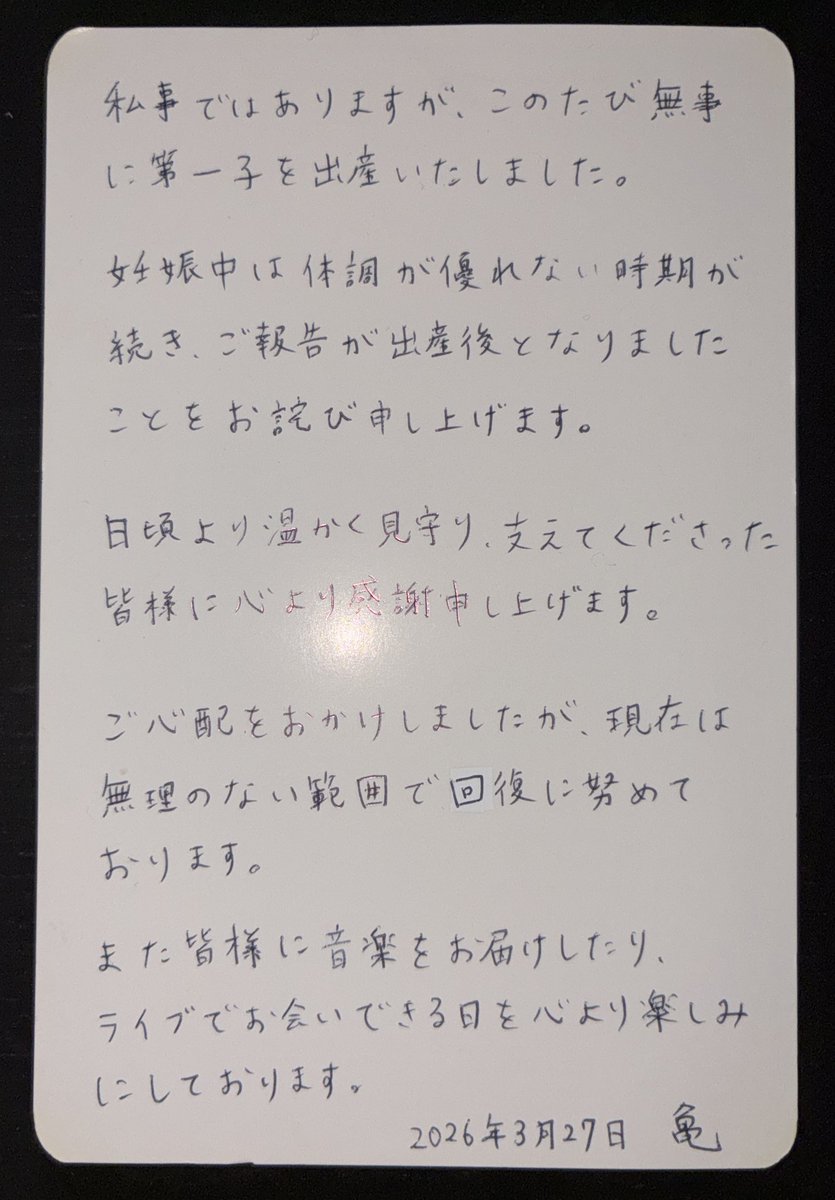 私事ではありますが、このたび無事
に第一子を出産いたしました。
妊娠中は体調が優れない時期が
続き、ご報告が出産後となりました
ことをお詫び申し上げます。
日頃より温かく見守り、支えてくださった
皆様に心より感謝申し上げます。
ご心配をおかけしましたが、現在は
無理のない範囲で回復に努めて
おります。
また皆様に音楽をお届けしたり、
ライブでお会いできる日を心より楽しみ
にしております。
2026年3月27日 亀